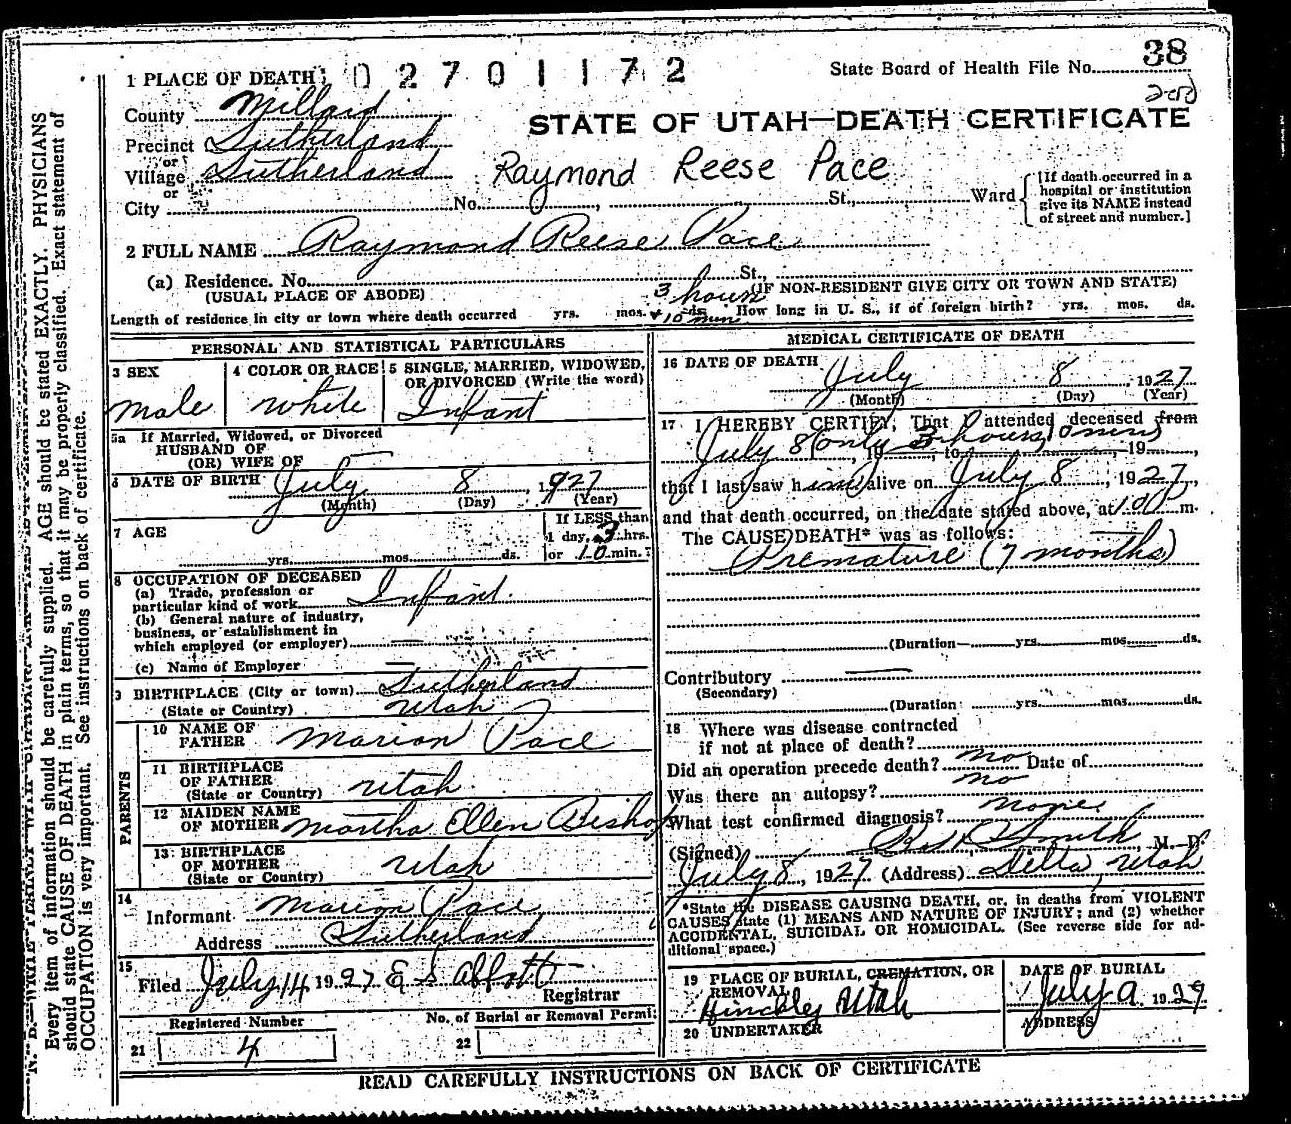 38
1 PLACE OF DEATH 02701172 State Board of Health File No.
County Millard
STATE OF UTAH—DEATH CERTIFICATE
Precinct Sutherland
or
Village Sutherland Raymond Reese Pace
or
City No. St., Ward
[If death occurred in a
hospital or institution
give its NAME instead
of street and number.]
2 FULL NAME Raymond Reese Pace
(a) Residence. No. St.,
(USUAL PLACE OF ABODE) (IF NON-RESIDENT GIVE CITY OR TOWN AND STATE)
3 hours
Length of residence in city or town where death occurred yrs. mos. + 10 min ds. How long in U. S., if of foreign birth? yrs. mos. ds.
PERSONAL AND STATISTICAL PARTICULARS
3 SEX
male
4 COLOR OR RACE
white
5 SINGLE, MARRIED, WIDOWED,
OR DIVORCED (Write the word)
Infant
5a If Married, Widowed, or Divorced
HUSBAND OF
(OR) WIFE OF
6 DATE OF BIRTH July 8, 1927
(Month) (Day) (Year)
7 AGE
yrs. mos. ds.
If LESS than
1 day, 3 hrs.
or 10 min.?
8 OCCUPATION OF DECEASED
(a) Trade, profession or
particular kind of work Infant.
(b) General nature of industry,
business, or establishment in
which employed (or employer)
(c) Name of Employer
9 BIRTHPLACE (City or town) Sutherland
(State or Country) Utah
PARENTS
10 NAME OF
FATHER Marion Pace
11 BIRTHPLACE
OF FATHER
(State or Country) Utah.
12 MAIDEN NAME
OF MOTHER Martha Ellen Bishop
13 BIRTHPLACE
OF MOTHER
(State or Country) Utah
14
Informant Marion Pace
Address Sutherland
15
Filed July 14 1927 E S Abbott
Registrar
Registered Number
21 4
No. of Burial or Removal Permit
22
MEDICAL CERTIFICATE OF DEATH
16 DATE OF DEATH July 8, 1927
(Month) (Day) (Year)
17 I HEREBY CERTIFY, That I attended deceased from
July 8 (only 3 hours 10 mins), 19, to, 19,
that I last saw him alive on July 8, 1927,
and that death occurred, on the date stated above, at 1:00 P m.
The CAUSE DEATH* was as follows:
Premature (7 months)
(Duration yrs. mos. ds.
Contributory
(Secondary)
(Duration yrs. mos. ds.
18 Where was disease contracted
if not at place of death?
Did an operation precede death? no Date of
Was there an autopsy? no
What test confirmed diagnosis? none
(Signed) Smith, M. D.
July 8, 1927 (Address) Delta, Utah
*State the DISEASE CAUSING DEATH, or, in deaths from VIOLENT
CAUSES state (1) MEANS AND NATURE OF INJURY; and (2) whether
ACCIDENTAL, SUICIDAL OR HOMICIDAL. (See reverse side for ad-
ditional space.)
19 PLACE OF BURIAL, CREMATION, OR
REMOVAL
Hinckley Utah
DATE OF BURIAL
July 9 1929
20 UNDERTAKER
ADDRESS
READ CAREFULLY INSTRUCTIONS ON BACK OF CERTIFICATE
Every item of information should be carefully supplied. AGE should be stated EXACTLY. PHYSICIANS
should state CAUSE OF DEATH in plain terms, so that it may be properly classified. Exact statement of
OCCUPATION is very important. See instructions on back of certificate.